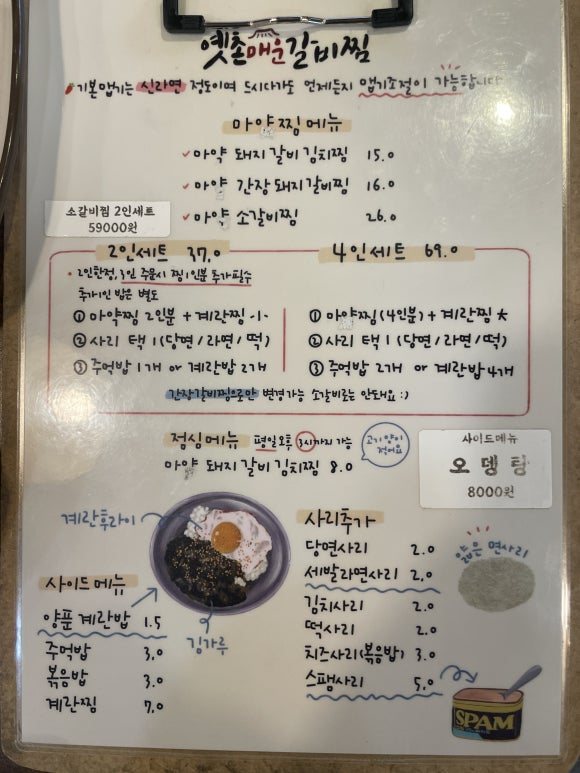 옛촌매운갈비찜
기본맵기는 신라면 정도이며 드시다가도 언제든지 맵기조절이 가능합니다
마약찜메뉴
마약 돼지갈비김치찜 15.0
마약 간장돼지갈비찜 16.0
마약 소갈비찜 26.0
소갈비찜 2인세트
59000원
2인세트 37.0
2인한정, 3인 주문시 찜1인분 추가필수
추가1인 밥은 별도
① 마약찜 2인분 + 계란찜 小
② 사리 택 1 (당면/라면/떡)
③ 주먹밥 1개 or 계란밥 2개
4인세트 69.0
① 마약찜(4인분) + 계란찜 大
② 사리 택 1 (당면/라면/떡)
③ 주먹밥 2개 or 계란밥 4개
간장갈비찜으로만 변경가능 소갈비로는 안돼요 :)
점심메뉴 평일오후 3시까지 가능
마약 돼지갈비김치찜 8.0
고기 양이
적어요
사이드메뉴
오뎅탕
8000원
계란후라이
김가루
사이드메뉴
양푼계란밥 1.5
주먹밥 3.0
볶음밥 3.0
계란찜 7.0
사리추가
당면사리 2.0
세발라면사리 2.0
김치사리 2.0
떡사리 2.0
치즈사리(볶음밥) 3.0
스팸사리 5.0
얇은 면사리
SPAM